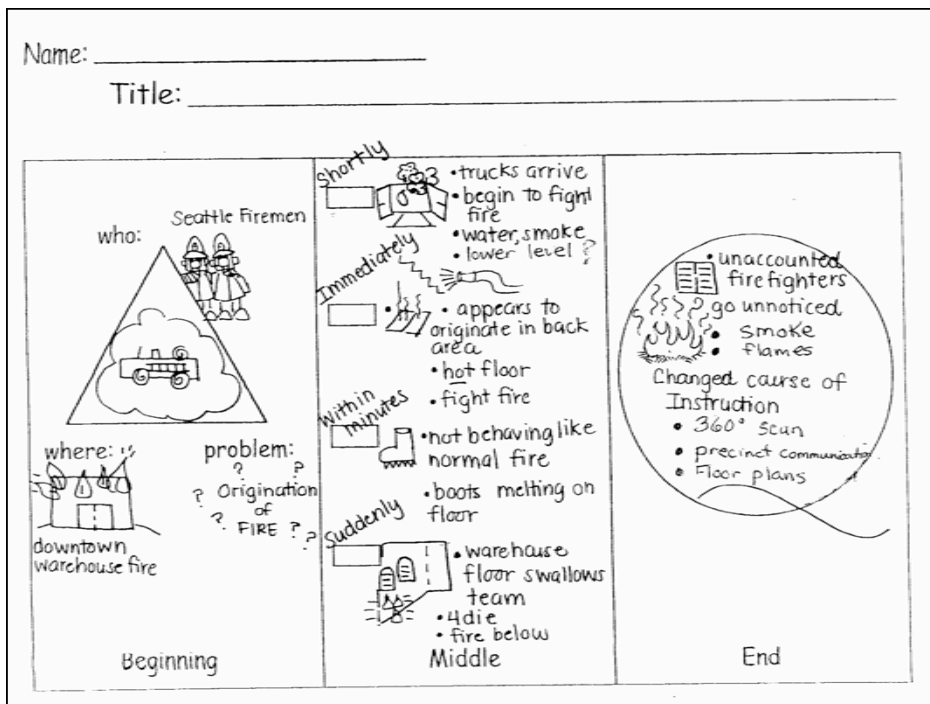 Name:
Title:
who:
Seattle Firemen
where:
problem:
? ?
? Origination
of
? FIRE ? ?
downtown
warehouse fire
Beginning
Shortly
• trucks arrive
• begin to fight
fire
• water, smoke
• lower level ?
Immediately
• appears to
originate in back
area
• hot floor
• fight fire
Within
minutes
• not behaving like
normal fire
• boots melting on
floor
Suddenly
• warehouse
floor swallows
team
• 4 die
• fire below
Middle
• unaccounted
firefighters
go unnoticed
• smoke
• flames
Changed course of
Instruction
• 360° scan
• precinct communication
• Floor plans
End